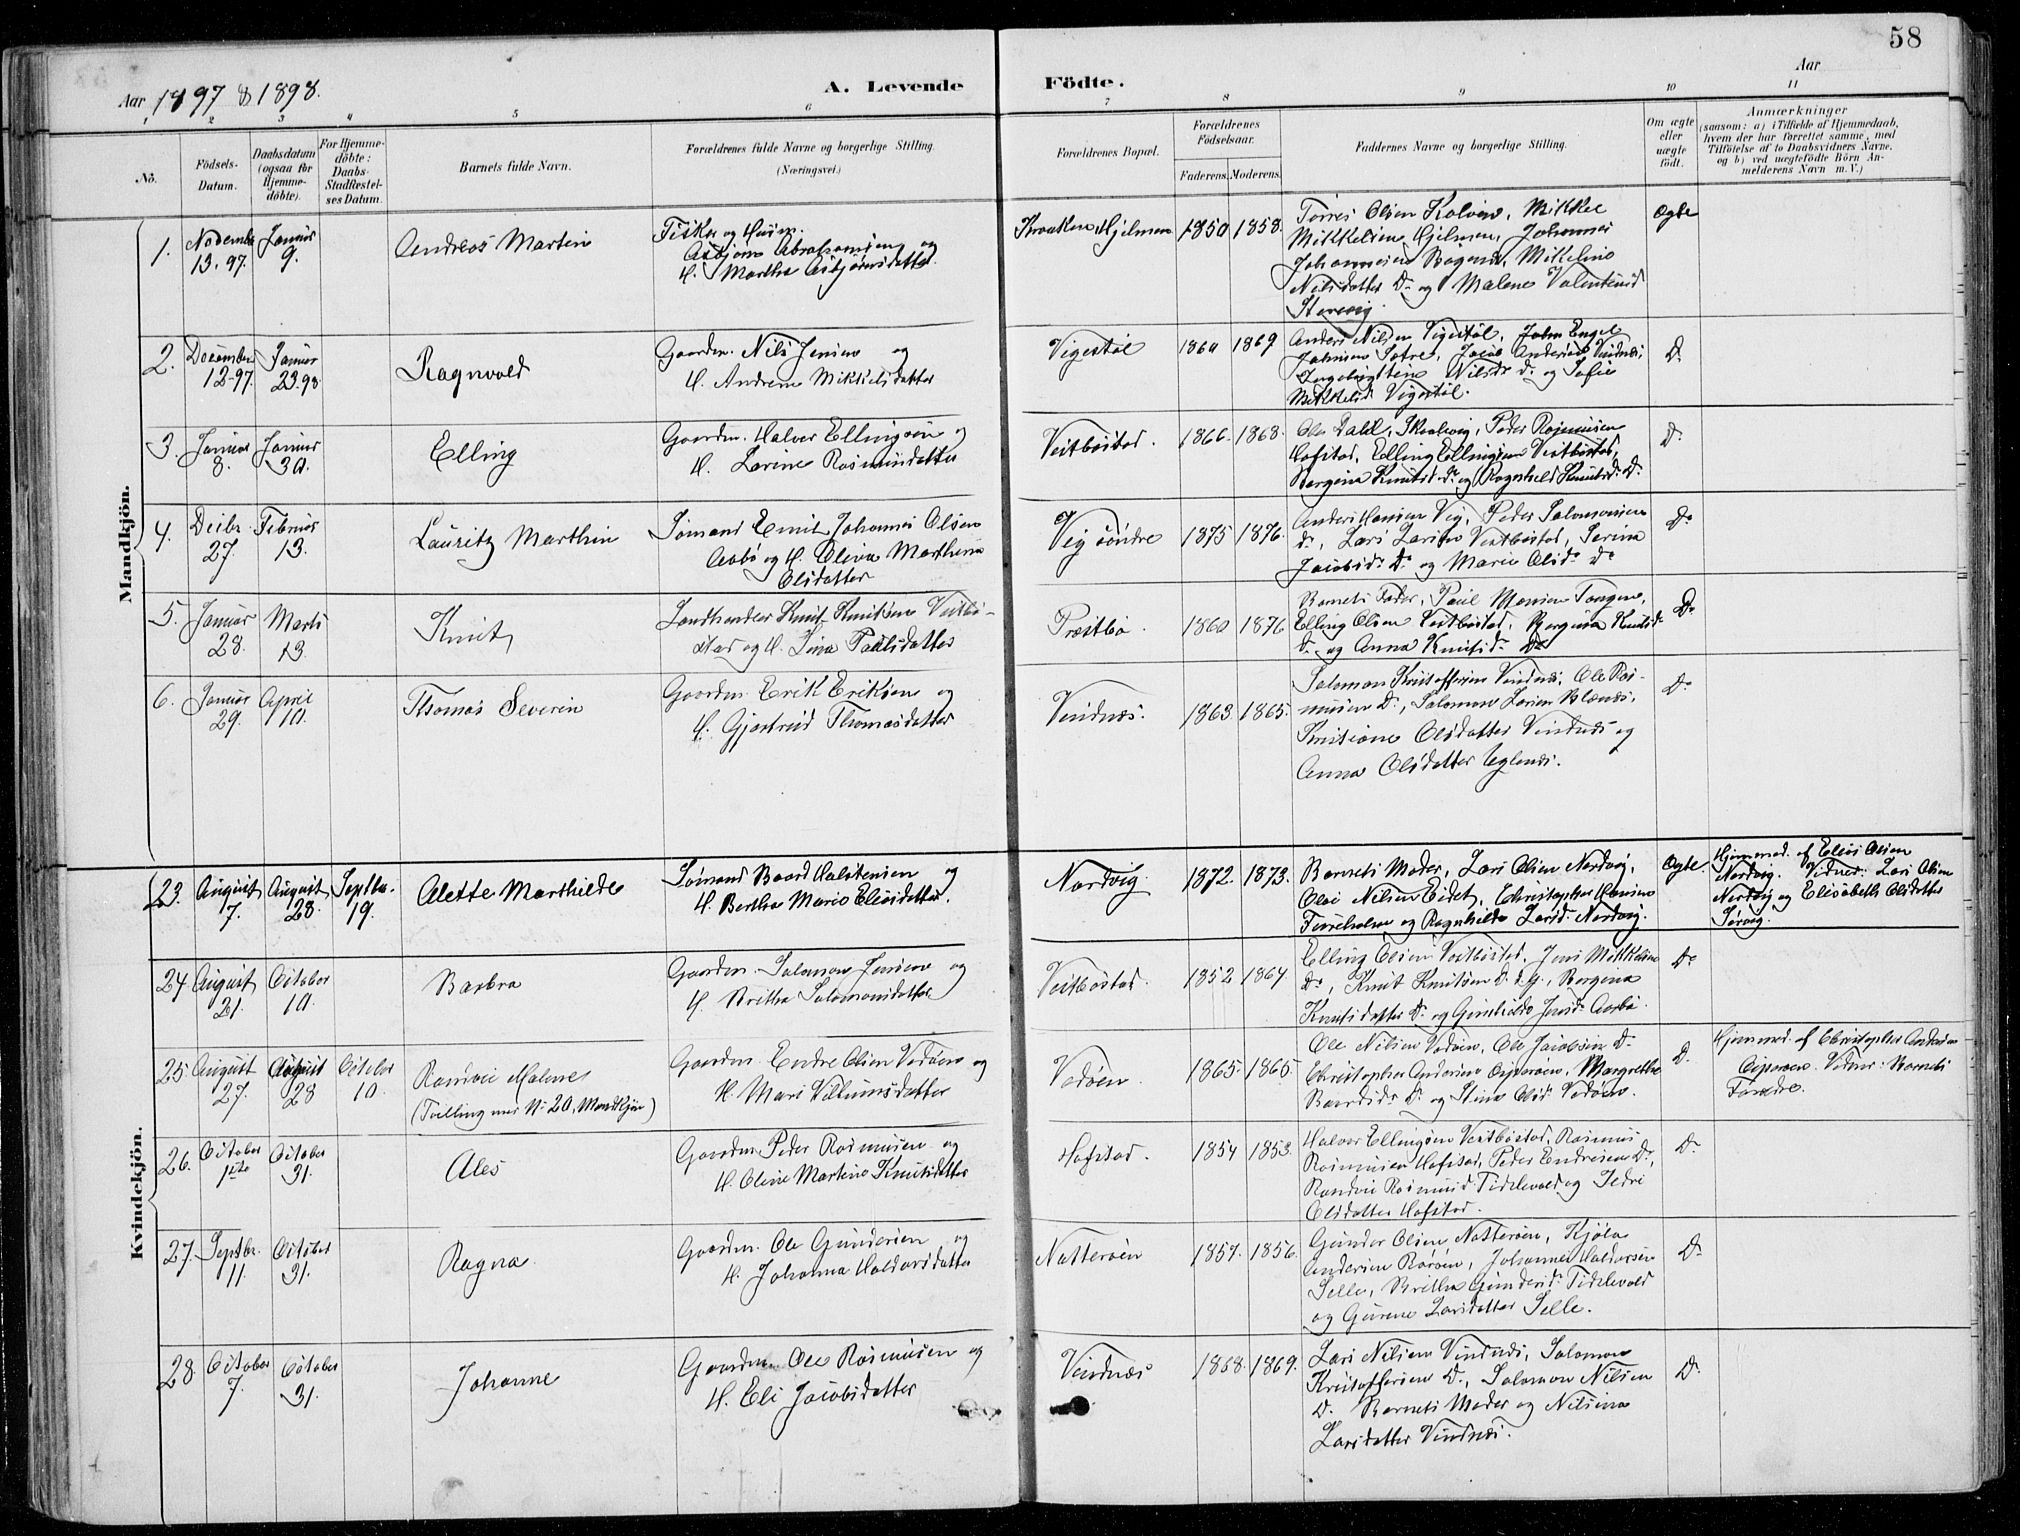 58
Aar 1897 & 1898.
A. Levende Födte.
Aar
1 2 3 4 5 6 7 8 9 10 11
No.
Födsels-Datum.
Daabsdatum (ogsaa for Hjemmedöbte).
For Hjemmedöbte: Daabs-Stadfæstelses Datum.
Barnets fulde Navn.
Forældrenes fulde Navne og borgerlige Stilling. (Næringsvei.)
Forældrenes Bopæl.
Forældrenes Födselsaar.
Faderens. Moderens.
Faddernes Navne og borgerlige Stilling.
Om ægte eller uægte födt.
Anmærkninger
(saasom: a) i Tilfælde af Hjemmedaab, hvem der har forrettet samme, med Tilföielse af to Daabsvidners Navne, og b) ved uægtefödte Börn Anmelderens Navn m.V.)
Mandkjön.
1. Novembr 13. 97. Januar 9. Andreas Martin
Fisker og Husm. Asbjørn Abrahamsen og
H. Martha Asbjørnsdatter.
Hjelmen 1850 1858.
Torres Olsen Kalven, Mikkel
Mikkelsen Hjelmen, Johannes
Johannesen Bogen, Mikkeline
Nilsdatter Do og Malene Valentinsd
Ægte
2. December 12-97. Januar 23.98 Ragnvald
Gaardm. Nils Jensen og
H. Andrea Mikkelsdatter
Vigestøl 1860 1869
Anders Nilsen Vigestøl, John Engel
Johnsen Sætre, Jacob Andersen Vindnes,
Nilsdr Do og Sofie
Mikkelsd Vigestøl.
Do
3. Januar 8. Januar 30. Elling
Gaardm. Halvor Ellingsen og
H. Larine Rasmusdatter
Vestbøstad. 1866. 1868.
Ole Dahl, Skaalevig, Peder Rasmusen
Hofstad, Elling Ellingsen Vestbøstad,
Bergina Knutsd. Do og Ragnhild Knutsd. Do
Do
4. Decbr. 27. Februar 13. Lauritz Marthin
Sømand Emil Johannes Olsen
Aasbø og H. Oleva Marthina
Olsdatter
Vig søndre 1875 1876.
Anders Hansen Vig, Peder Salomonsen
Do, Lars Larsen Vestbøstad, Serina
Jacobsdr Do og Marie Olsdr Do
Do
5. Januar 28. Marts 13. Knut
Landhandler Knut Knutsen Vestbø-
stad og H. Sina Paulsdatter
Præstbø. 1860 1876
Barnets Fader, Paul Monsen Tangen,
Elling Olsen Vestbøstad, Bergina Knutsd.
Do og Anna Knutsd. Do
Do
6. Januar 29. April 10. Thomas Severin
Gaardm. Erik Eriksen og
H. Gjertrud Thomasdatter
Vindnæs. 1863. 1865.
Salomon Kristoffersen Vindnes, Ole Ras-
musen Do, Salomon Larsen Blænes,
Kristiane Olsdatter Vindnes og
Anna Olsdatter Uglenes.
Do
Kvindekjön.
23. August 7. August 28. Septbr. 19. Alette Marthilde
Sømand Baard Halstensen og
H. Bertha Marie Eliasdatter.
Nordvig 1872. 1873.
Barnets Moder, Lars Olsen Nordvig,
Olai Nilsen Eidet, Christopher Hansen
Fureholmen og Ragnhilde Larsd. Nordvig.
Ægte.
Hjemmed. af Elias Olsen
Nordvig. Vidner: Lars Olsen
Nordvig og Elisabeth Olsdatter
Sørvig.
24. August 21. October 10. Barbra
Gaardm. Salomon Jensen og
H. Britha Salomonsdatter
Vestbøstad. 1852 1864
Elling Olsen Vestbøstad, Jens Mikkelsen
Do, Knut Knutsen Do d.y., Bergina
Knutsdatter Do og Gunhilde Jensdr Aasbø.
Do
25. August 27. August 28 October 10. Randvei Malene
(Tvilling med No 20, Mandkjøn)
Gaardm. Endre Olsen Vedøen og
H. Mari Villumsdatter
Vedøen. 1865. 1865.
Ole Nilsen Vedøen, Ole Jacobsen Do
Christopher Andersen Asperøen, Margrethe
Baardsdr Do og Stina Olsdr Vedøen.
Do
Hjemmed. af Christopher Andersen
Asperøen. Vidner: Barnets
Forældre.
26. October 1ste October 31. Ales
Gaardm. Peder Rasmusen og
H. Oline Martine Knutsdatter
Hofstad. 1854 1853.
Halvor Ellingsen Vestbøstad, Rasmus
Rasmusen Hofstad, Peder Endresen Do,
Randvei Rasmusd. Tislevold og Sedri
Olsdatter Hofstad.
Do
27. Septbr. 11. October 31. Ragna.
Gaardm. Ole Gundersen og
H. Johanna Haldorsdatter
Natterøen 1857. 1856.
Gunder Olsen Natterøen, Kjøla
Andersen Rørøen, Johannes Haldorsen
Selle, Britha Gundersdr Tislevold
og Gurene Larsdatter Selle.
Do
28. October 7. October 31. Johanne
Gaardm. Ole Rasmusen og
H. Eli Jacobsdatter
Vindnæs 1868. 1869.
Lars Nilsen Vindnæs, Salomon
Kristoffersen Do, Salomon Nilsen
Do Barnets Moder og Nilsina
Larsdatter Vindnes.
Do